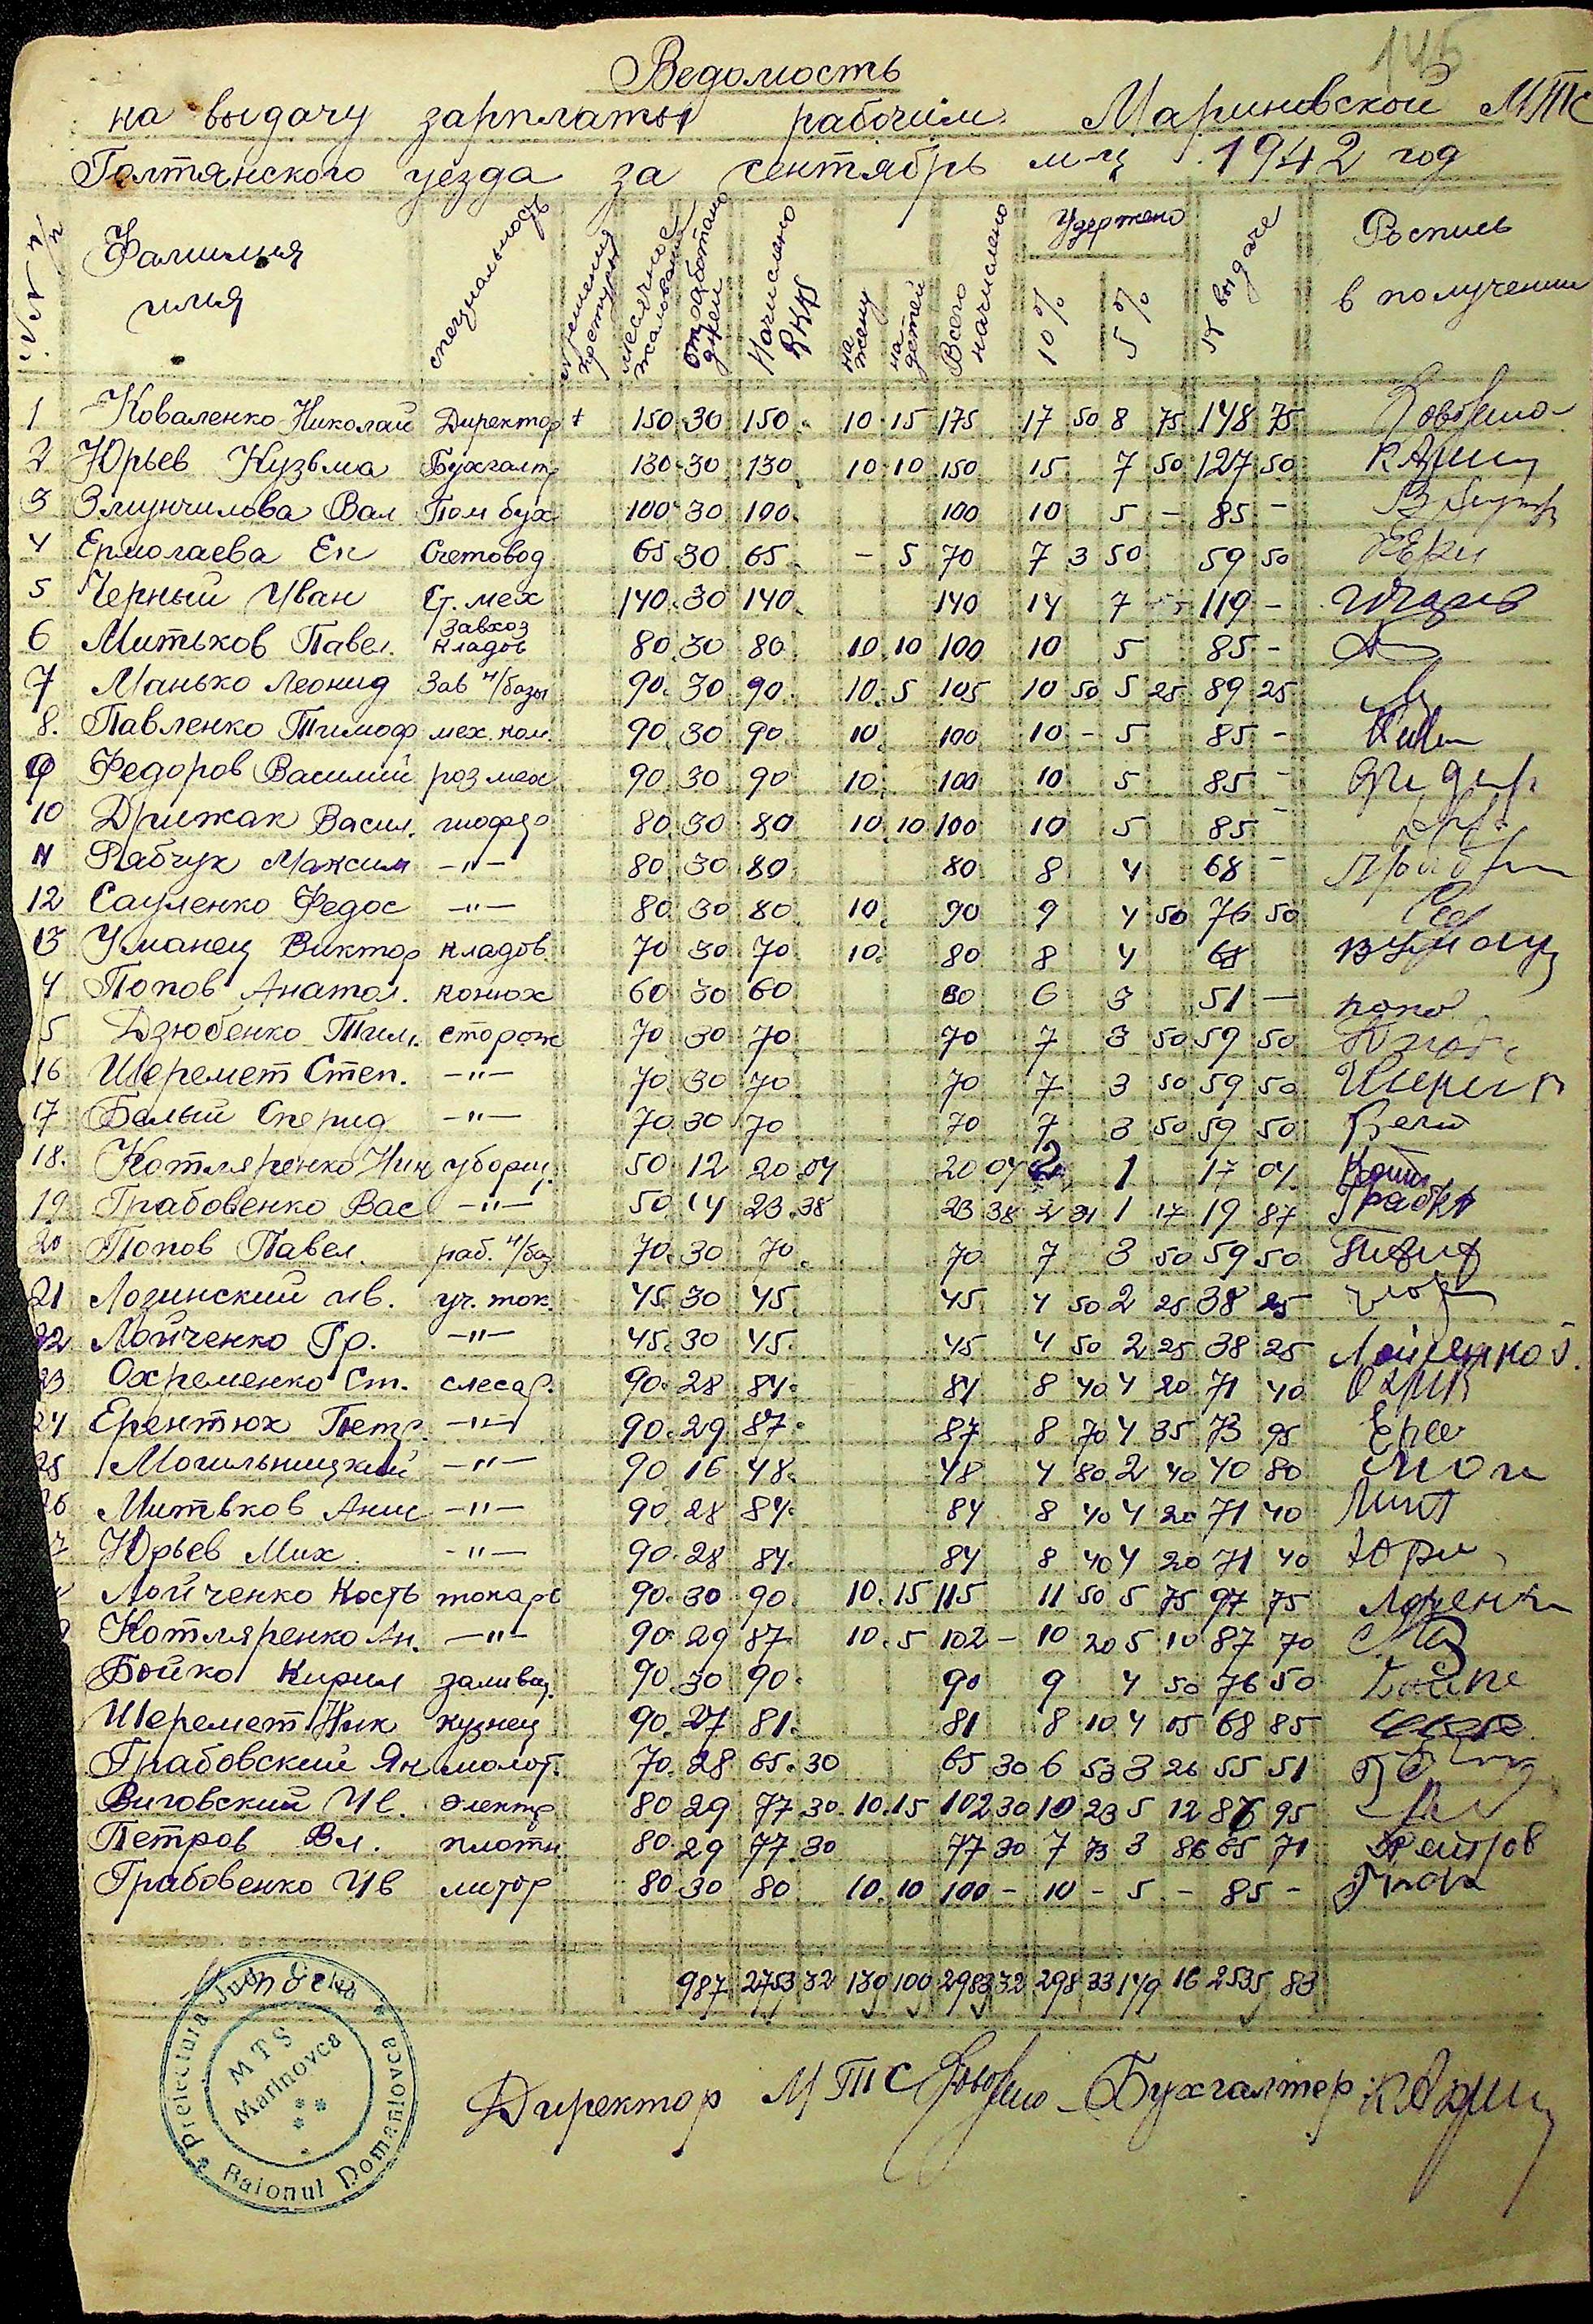 145
Ведомость
на выдачу зарплаты рабочим Мариновской МТС
Голтянского уезда за сентябрь м-ц 1942 год
№№ п/п Фамилия имя специальность месячное жалование отработано дней Начислено RKKS на жену на детей Всего начислено Удержано 10% 5% К выдаче Роспись в получении
1 Коваленко Николай Директор + 150 30 150 10 15 175 17 50 8 75 148 75
2 Юрьев Кузьма Бухгалт 130 30 130 10 10 150 15 7 50 127 50
3 Змунчилова Вал Пом бух 100 30 100 100 10 5 - 85 -
4 Ермолаева Ек Счетовод 65 30 65 - 5 70 7 3 50 59 50
5 Черный Иван Ст. мех 140 30 140 140 14 7 119 -
6 Митьков Павел. Завхоз кладов 80 30 80 10 10 100 10 5 85 -
7 Манько Леонид Зав н/базы 90 30 90 10 5 105 10 50 5 25 89 25
8. Павленко Тимоф мех. ком. 90 30 90 10 100 10 - 5 85 -
9 Федоров Василий раз мех 90 30 90 10 100 10 5 85 -
10 Дрижак Васил. шофер 80 30 80 10 10 100 10 5 85 -
11 Рабчук Максим -"- 80 30 80 80 8 4 68 -
12 Сауленко Федос -"- 80 30 80 10 90 9 4 50 76 50
13 Уманец Виктор кладов. 70 30 70 10 80 8 4 68
4 Попов Анатол. конюх 60 30 60 60 6 3 51 - попо
5 Дзюбенко Тим. сторож 70 30 70 70 7 3 50 59 50
16 Шеремет Степ. -"- 70 30 70 70 7 3 50 59 50
17 Белый Сперид -"- 70 30 70 70 7 3 50 59 50
18. Котляренко Нин уборщ. 50 12 20.04 20 04 2 1 17 04
19. Грабовенко Вас -"- 50 14 23.38 23 38 2 34 1 17 19 87
20 Попов Павел. раб. н/баз 70 30 70 70 7 3 50 59 50
21 Лозинский ив. уч. ток. 45 30 45 45 4 50 2 25 38 25
22 Лойченко Гр. -"- 45 30 45 45 4 50 2 25 38 25
23 Охременко Ст. слесар. 90 28 84 84 8 40 4 20 71 40
24 Ерентюк Петр. -"- 90 29 87 87 8 70 4 35 73 95
25 Могильницкий -"- 90 16 48 48 4 80 2 40 40 80
26 Митьков Анис -"- 90 28 84 84 8 40 4 20 71 40
7 Юрьев Мих. -"- 90 28 84 84 8 40 4 20 71 40
Лойченко Кость токарь 90 30 90 10 15 115 11 50 5 75 97 75
Котляренко Ан. -"- 90 29 87 10 5 102 - 10 20 5 10 87 70
Бойко Кирил заливщ. 90 30 90 90 9 4 50 76 50
Шеремет Ник кузнец 90 27 81 81 8 10 4 05 68 85
Грабовский Ян молот. 70 28 65.30 65 30 6 53 3 26 55 51
Виговский Ив. электр 80 29 77 30 10 15 102 30 10 23 5 12 86 95
Петров Вл. плотн. 80 29 77 30 77 30 7 73 3 86 65 71
Грабовенко Ив литор 80 30 80 10 10 100 - 10 - 5 - 85 -
987 2753 32 130 100 2983 32 298 33 149 16 2535 83
Prefectura Jud. Golta
MTS
Marinovca
Raionul Domaniovca
Директор МТС Бухгалтер